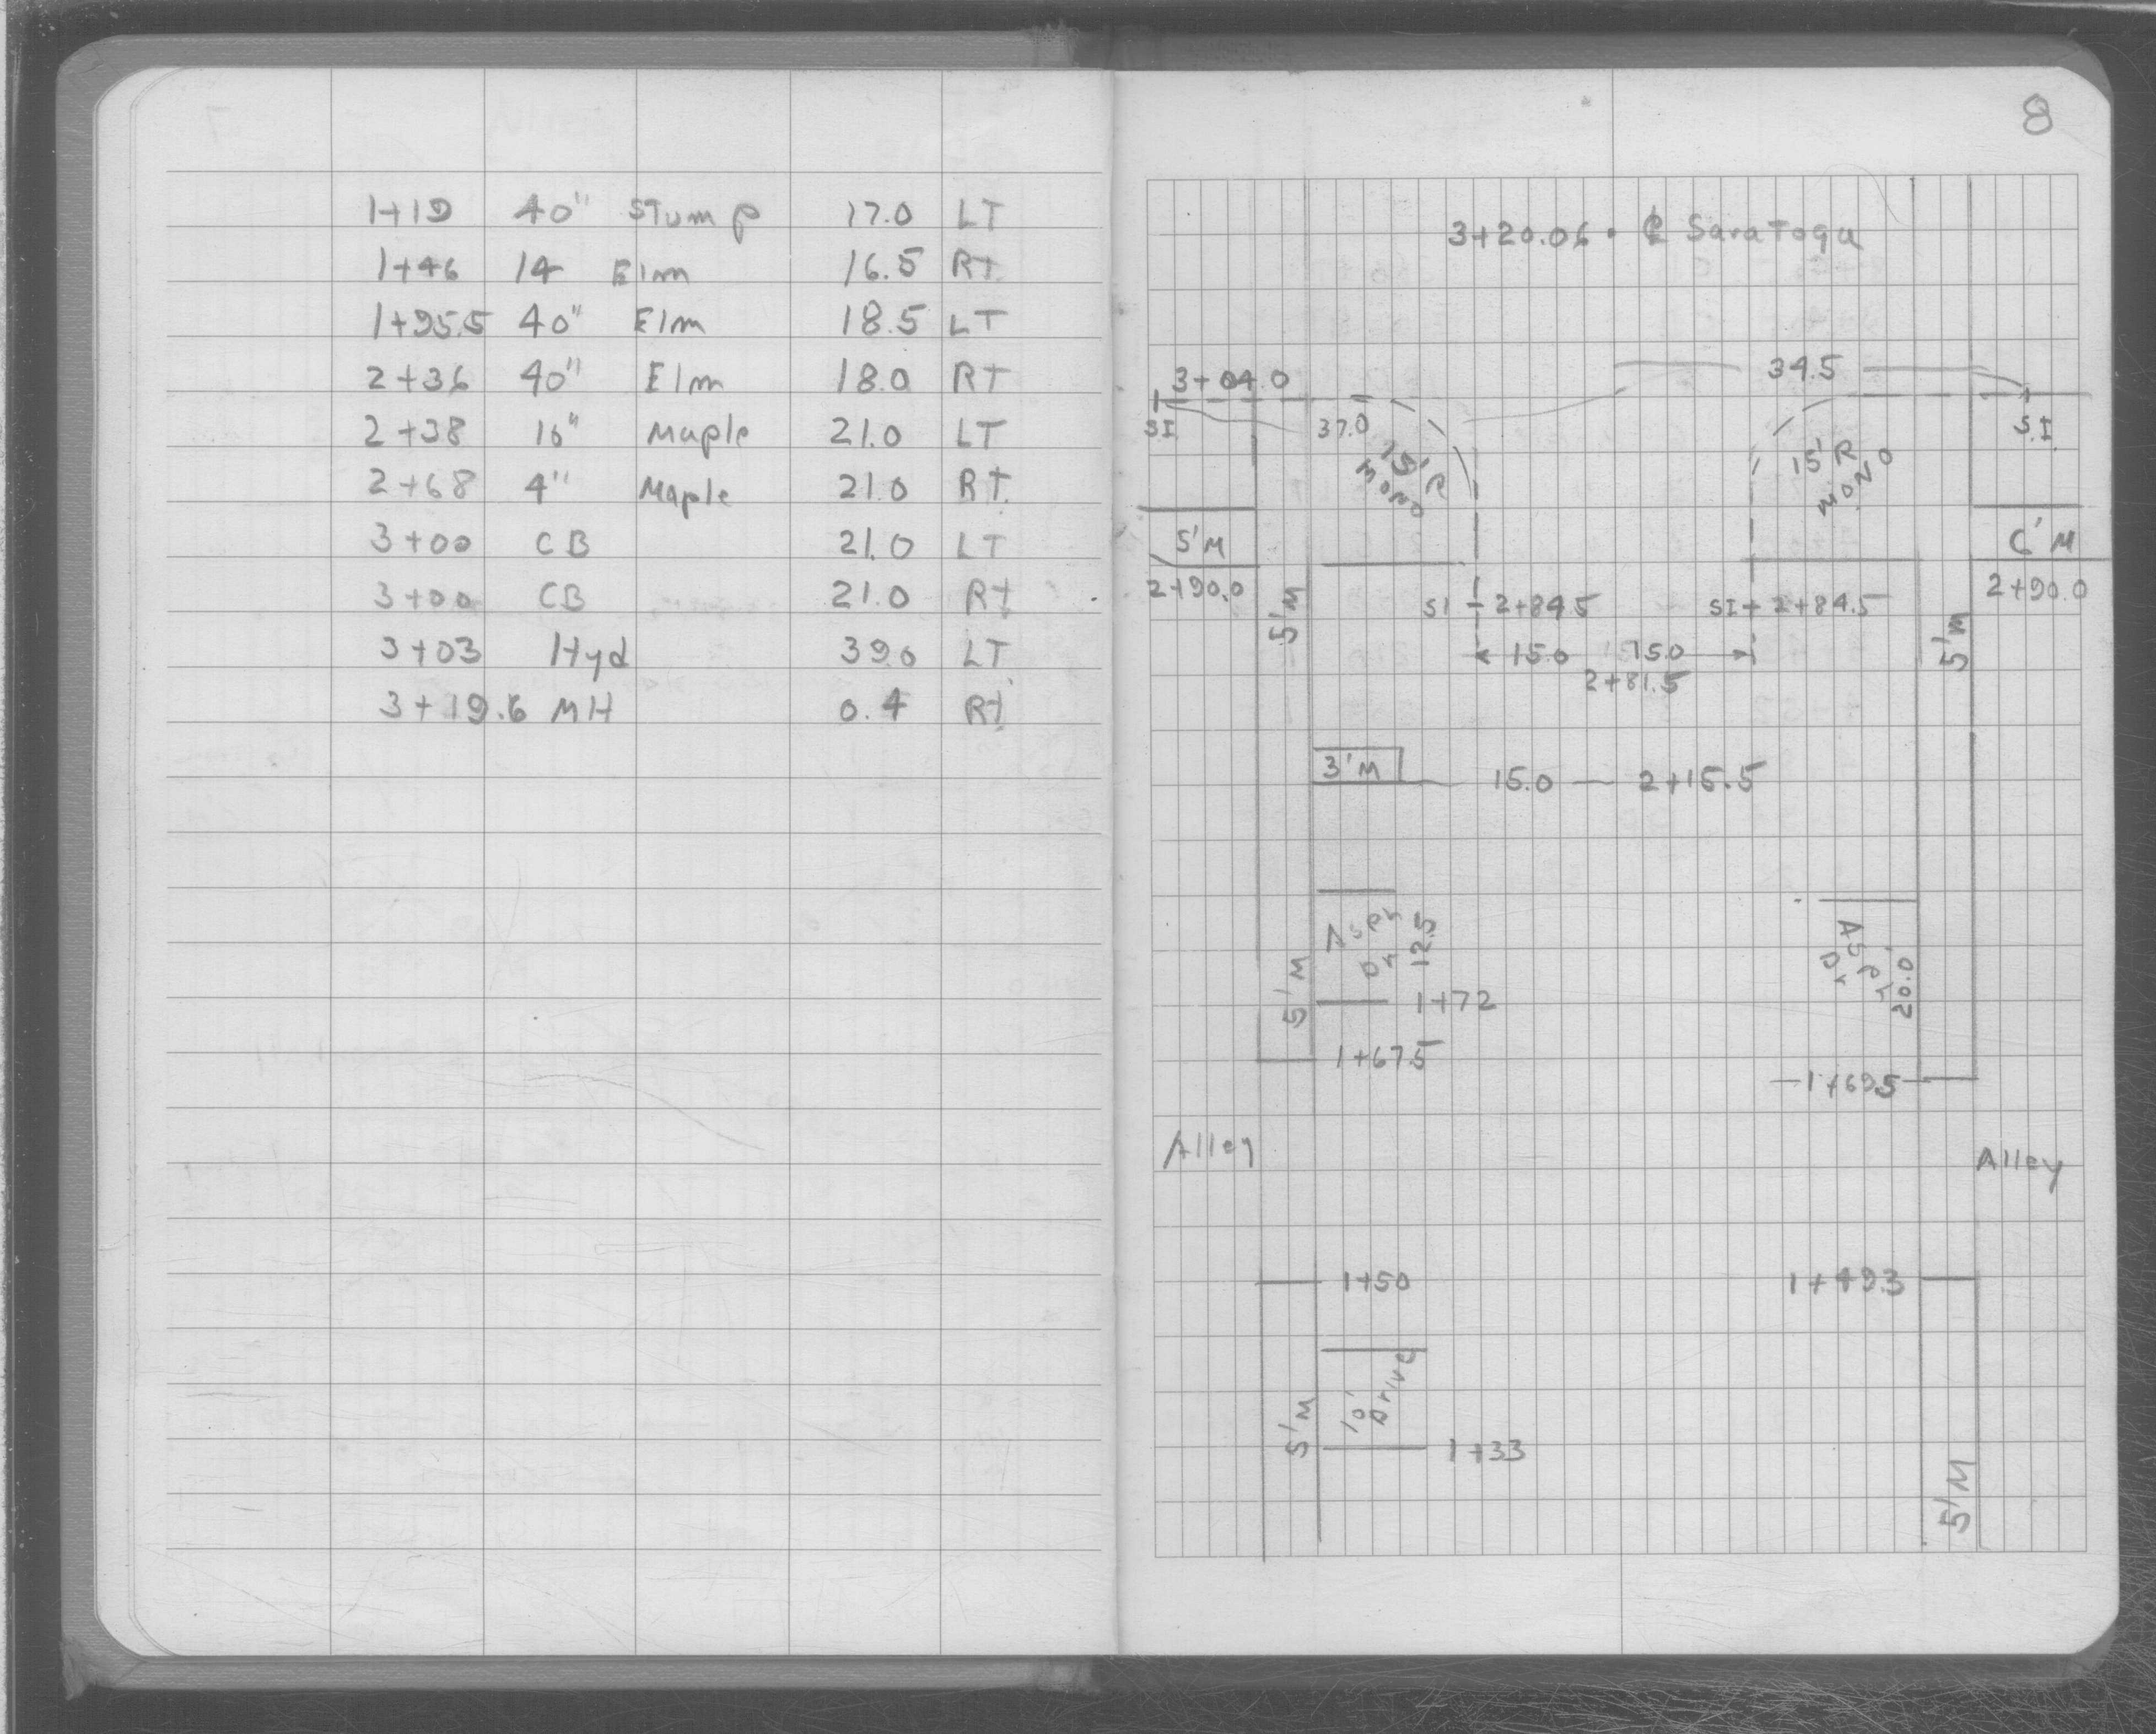 1+19 40" STump 17.0 LT
1+46 14 Elm 16.5 RT
1+95.5 40" Elm 18.5 LT
2+36 40" Elm 18.0 RT
2+38 16" Maple 21.0 LT
2+68 4" Maple 21.0 RT.
3+00 CB 21.0 LT
3+00 CB 21.0 RT
3+03 Hyd 39.0 LT
3+19.6 MH 0.4 RT
8
3+20.06 ℄ SaraToga
34.5
3+04.0
SI 37.0 S.I
15'R MONO
15'R MONO
5'M 6'M
2+90.0 2+90.0
5'M SI 2+84.5 SI 2+84.5 5'M
15.0 15.0
2+81.5
3'M 15.0 2+15.5
Asph Dr 12.5
Asph Dr 20.0'
5'M 1+72
1+67.5
1+69.5
Alley Alley
1+50 1+49.3
10' Drive
5'M 1+33
5'M